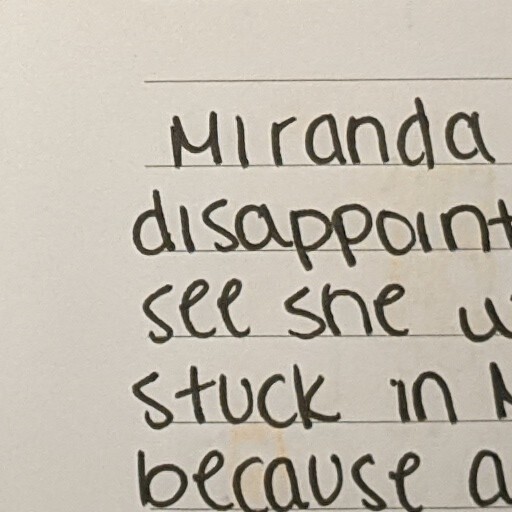 Miranda
disappoint
see she w
stuck in N
because a